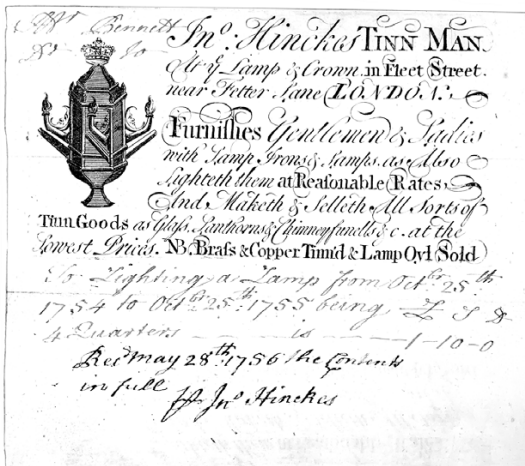 Mr Bennett
Dr to
Jno: Hinckes TINN MAN.
At ye Lamp & Crown in Fleet Street.
near Fetter Lane LONDON.
Furnishes Gentlemen & Ladies
with Lamp Irons & Lamps. as Also
Lighteth them at Reasonable Rates
And Maketh & Selleth All Sorts of
Tinn Goods as Glass, Lanthorns & Chimney funells & c. at the
Lowest Prices. NB. Brass & Copper Tinn'd & Lamp Oyl Sold
To Lighting a Lamp from Octbr 25th
1754 to Octbr 25th 1755 being £ S D
4 Quarters is 1-10-0
Recd May 28th 1756 the Contents
in full
Jno Hinckes